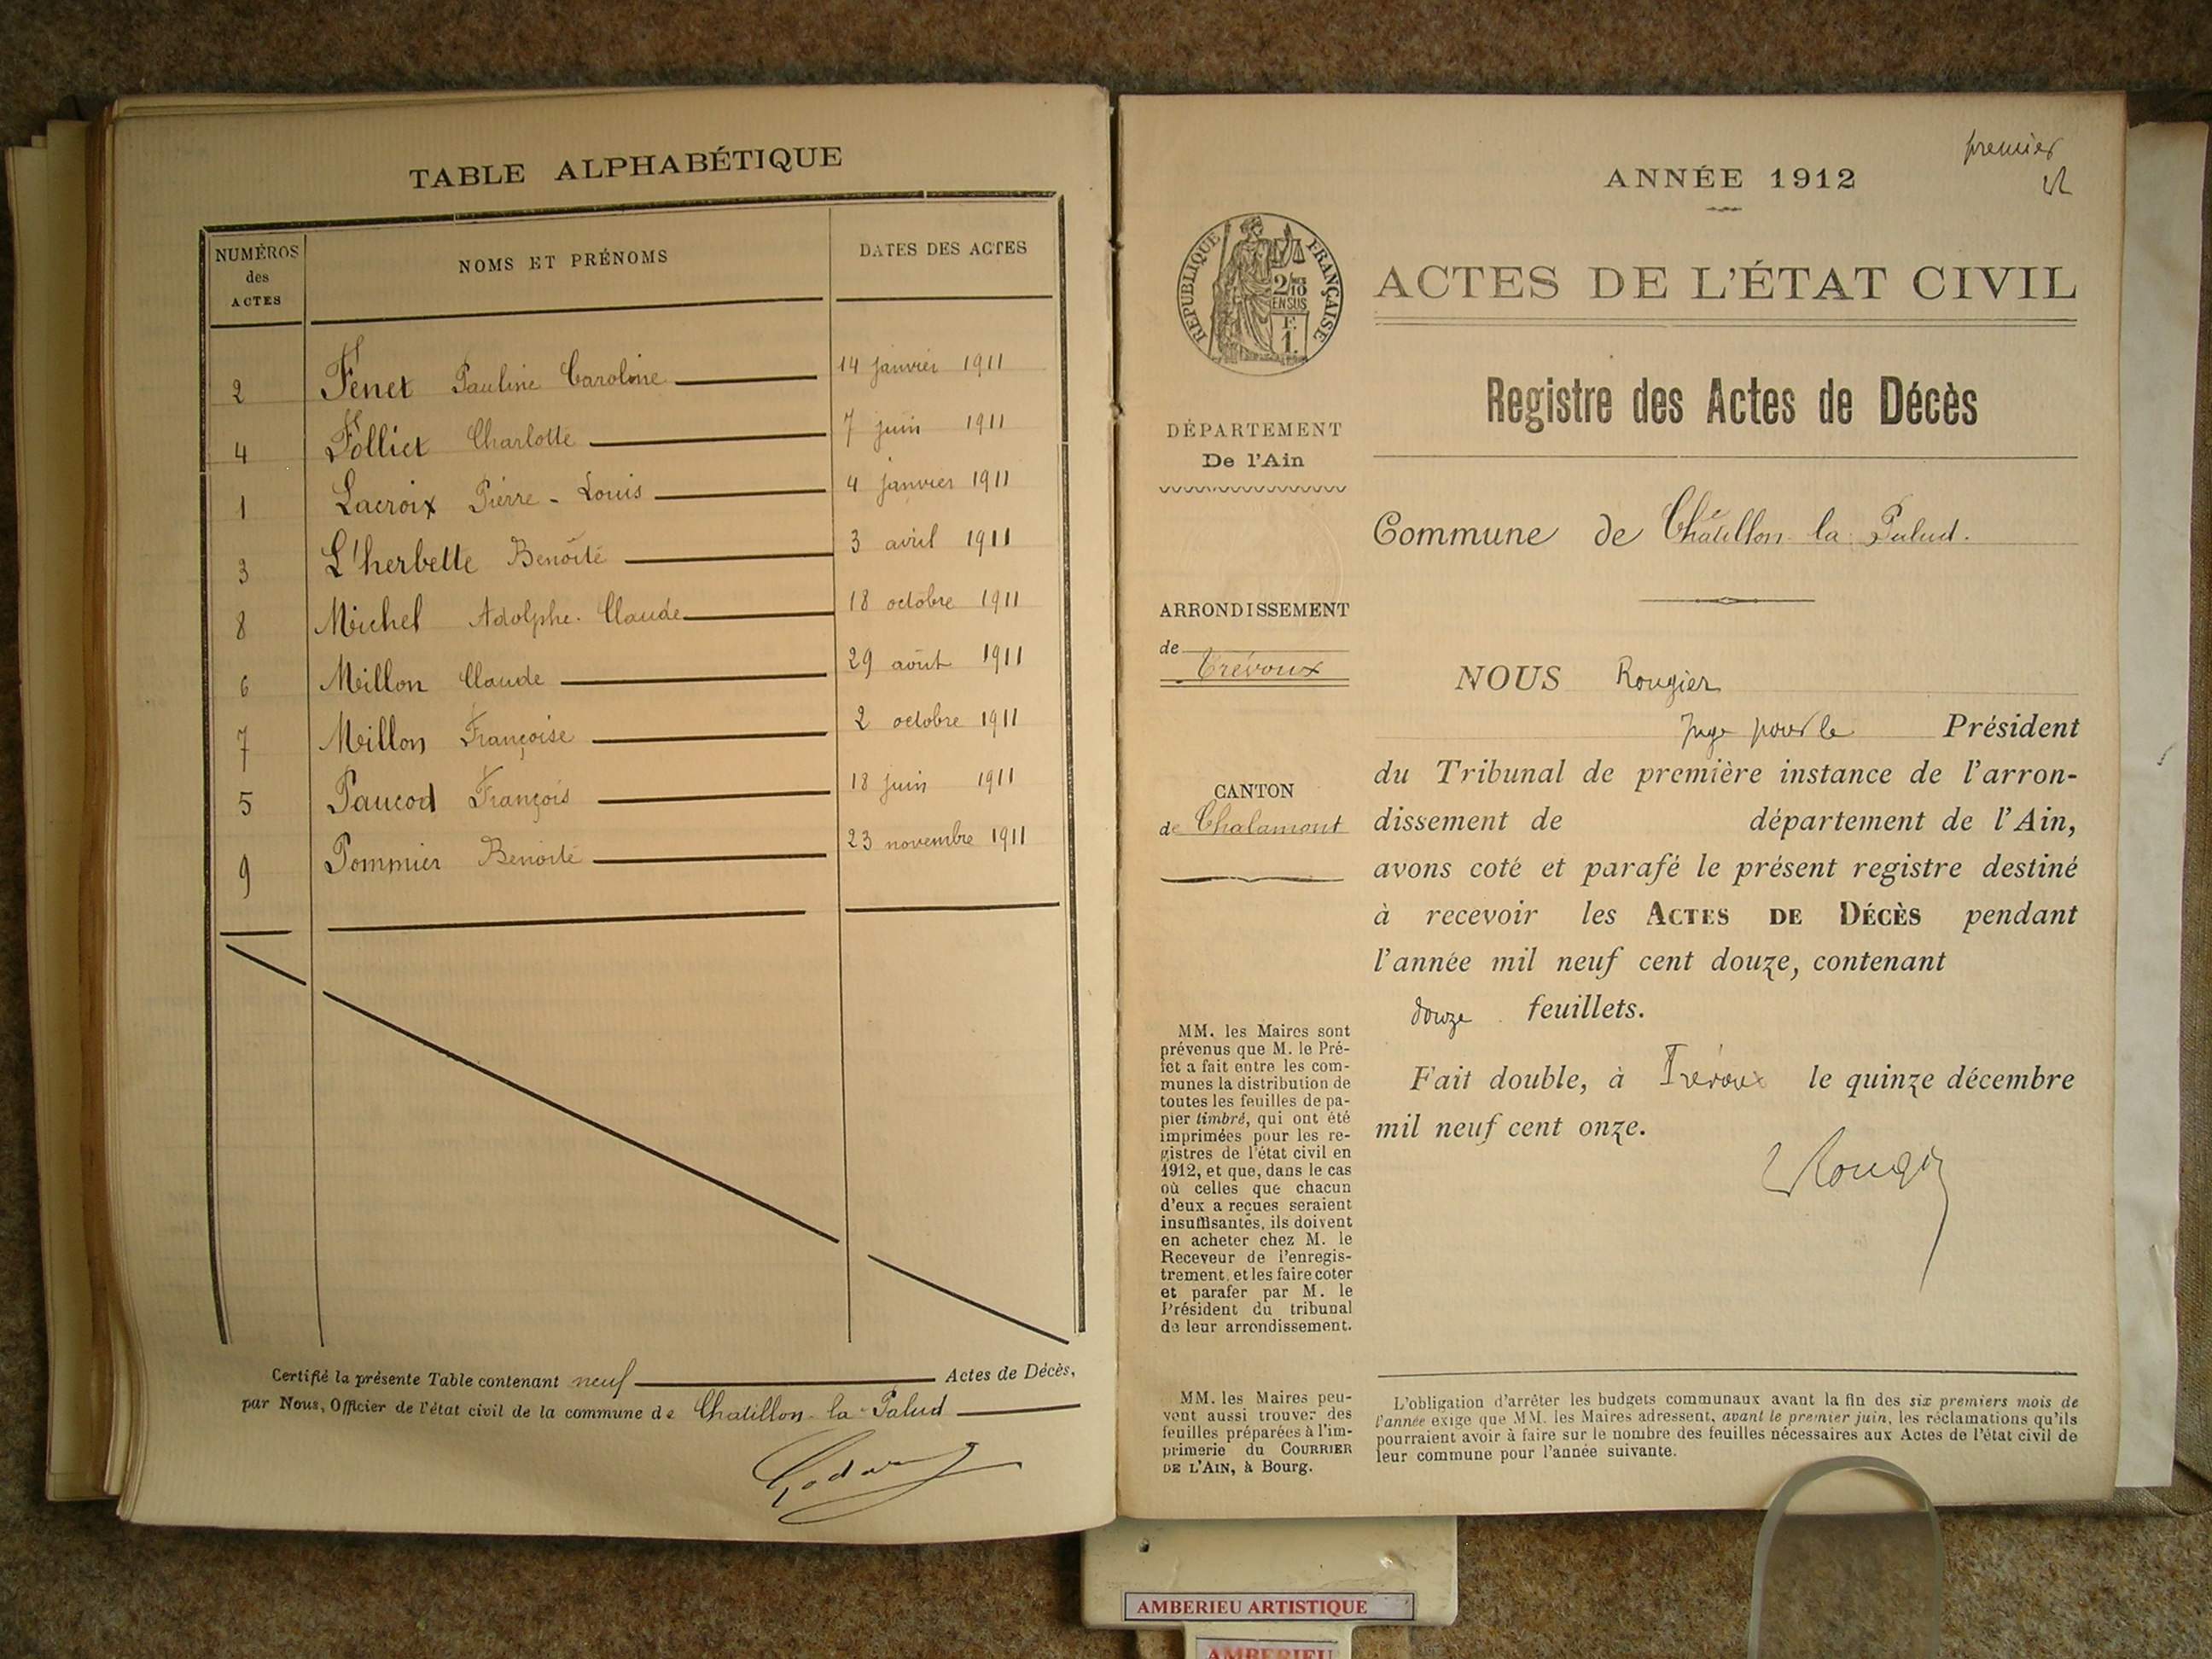 TABLE ALPHABÉTIQUE
NUMÉROS
des
ACTES
NOMS ET PRÉNOMS
DATES DES ACTES
2 Fenet Pauline Caroline 14 janvier 1911
4 Folliet Charlotte 7 juin 1911
1 Lacroix Pierre - Louis 4 janvier 1911
3 L'herbette Benoîte 3 avril 1911
8 Michel Adolphe. Claude 18 octobre 1911
6 Millon Claude 29 août 1911
7 Millon Françoise 2 octobre 1911
5 Paucod François 18 juin 1911
9 Pommier Benoîte 23 novembre 1911
Certifié la présente Table contenant neuf Actes de Décès,
par Nous, Officier de l'état civil de la commune de Chatillon-la-Palud
premier
ANNÉE 1912
RÉPUBLIQUE FRANÇAISE
2/10
EN SUS
F.
1.
ACTES DE L'ÉTAT CIVIL
Registre des Actes de Décès
DÉPARTEMENT
De l'Ain
Commune de Châtillon la Palud.
ARRONDISSEMENT
de
Trévoux
CANTON
de Chalamont
NOUS Rougier
Juge pour le Président
du Tribunal de première instance de l'arron-
dissement de département de l'Ain,
avons coté et parafé le présent registre destiné
à recevoir les ACTES DE DÉCÈS pendant
l'année mil neuf cent douze, contenant
douze feuillets.
Fait double, à Trévoux le quinze décembre
mil neuf cent onze.
Rougier
MM. les Maires sont
prévenus que M. le Pré-
fet a fait entre les com-
munes la distribution de
toutes les feuilles de pa-
pier timbré, qui ont été
imprimées pour les re-
gistres de l'état civil en
1912, et que, dans le cas
où celles que chacun
d'eux a reçues seraient
insuffisantes, ils doivent
en acheter chez M. le
Receveur de l'enregis-
trement, et les faire coter
et parafer par M. le
Président du tribunal
de leur arrondissement.
MM. les Maires peu-
vent aussi trouver des
feuilles préparées à l'im-
primerie du COURRIER
DE L'AIN, à Bourg.
L'obligation d'arrêter les budgets communaux avant la fin des six premiers mois de
l'année exige que MM. les Maires adressent, avant le premier juin, les réclamations qu'ils
pourraient avoir à faire sur le nombre des feuilles nécessaires aux Actes de l'état civil de
leur commune pour l'année suivante.
AMBERIEU ARTISTIQUE
AMBERIEU